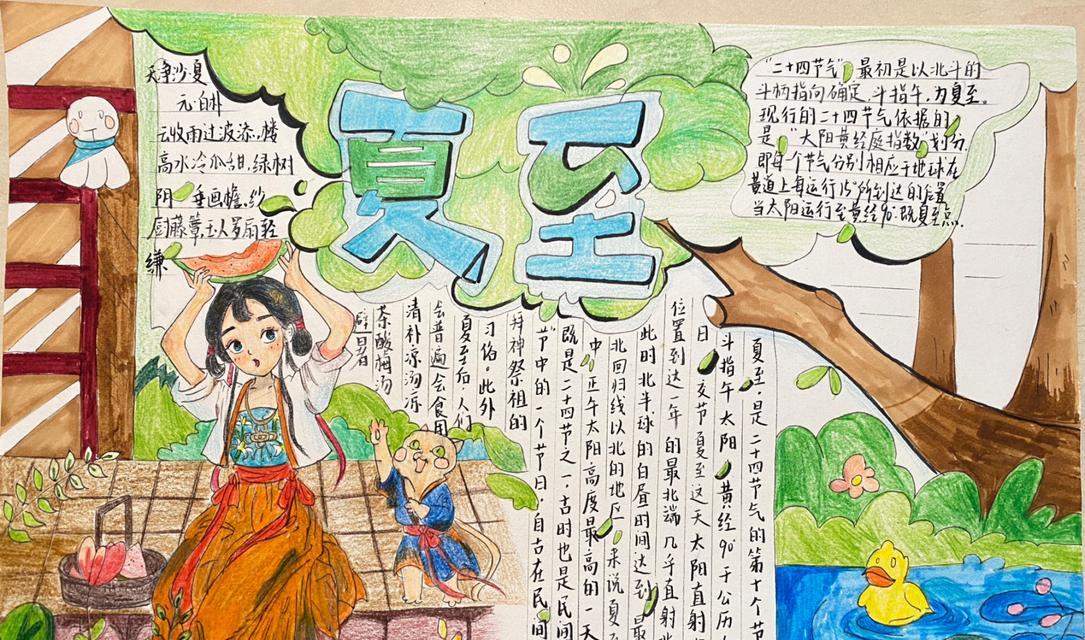 夏至
天净沙夏
元·白朴
云收雨过波添,楼
高水冷瓜甜,绿树
阴垂画檐,纱
厨藤簟玉人罗扇轻
缣
"二十四节气"最初是以北斗的
斗柄指向确定,斗指午,为夏至。
现行的二十四节气依据的
是"太阳黄经度指数"划分
即每个节气分别相应于地球在
黄道上每运行15°所到达的位置
当太阳运行至黄经90°既夏至点.
夏至,是二十四节气的第十个节
斗指午太阳黄经90°于公历
日交节夏至这天太阳直射
位置到达一年的最北端几乎直射
此时北半球的白昼时间达到最
北回归线以北的地区来说夏
中正午太阳高度最高的一天
既是二十四节之一.古时也是民间
节中的一个节日.自古在民间
拜神祭祖的
习俗.此外
夏至后,人们
会普遍会食用
清补凉汤凉
茶酸梅汤
避暑